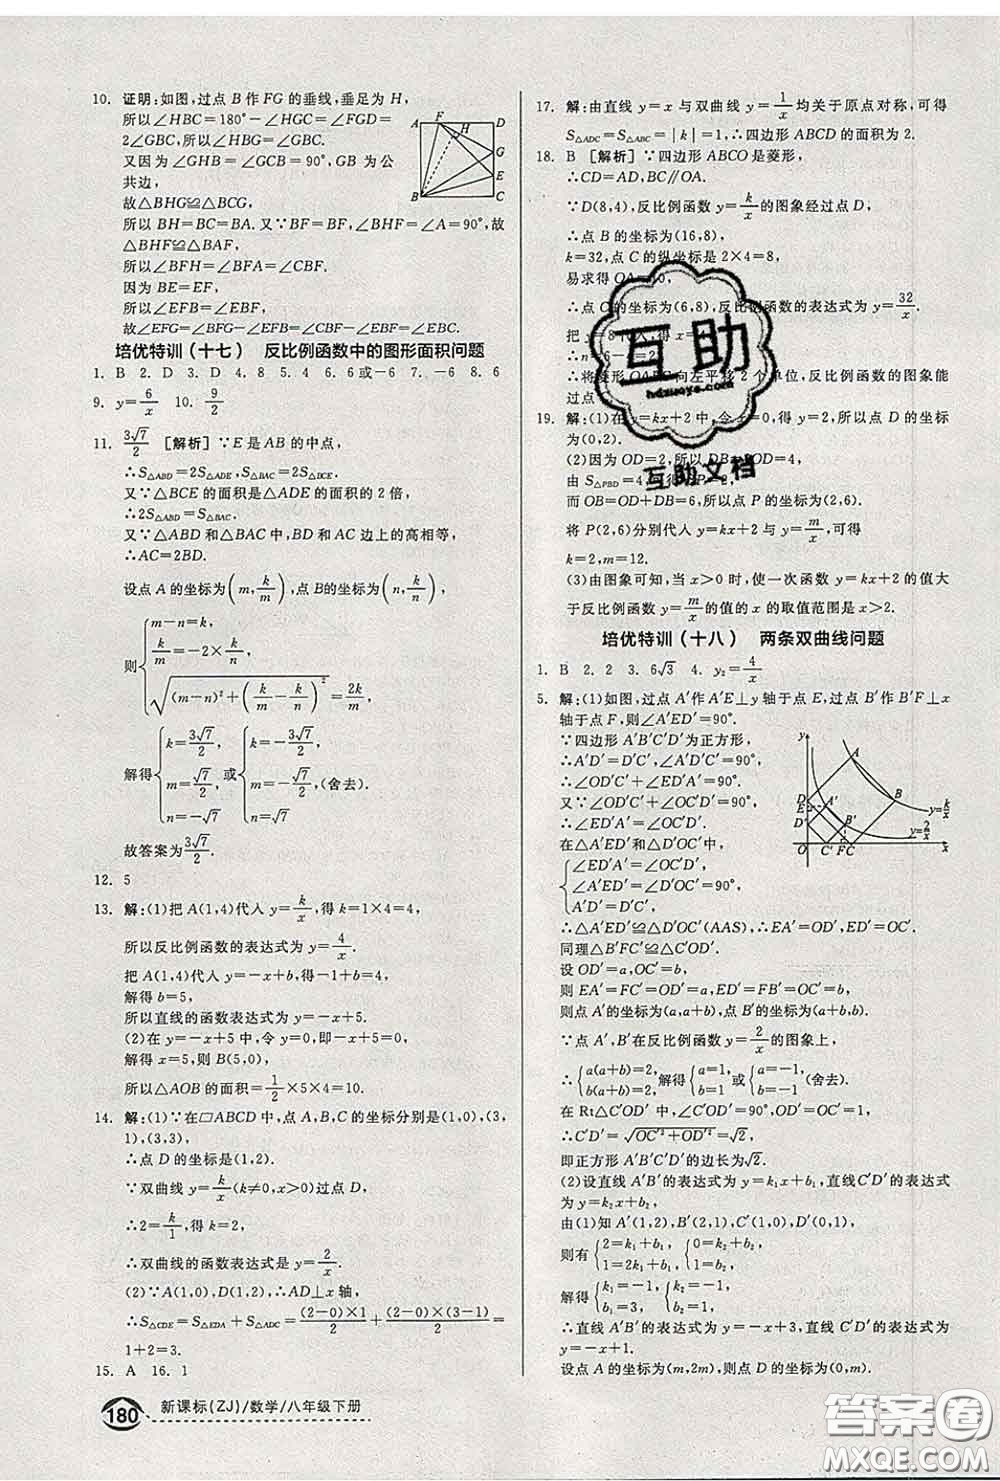 10. 证明:如图,过点 B 作 FG 的垂线,垂足为 H,
所以∠HBC=180°-∠HGC=∠FGD=
2∠GBC,所以∠HBG=∠GBC.
又因为∠GHB=∠GCB=90°,GB 为公
共边,
故△BHG≌△BCG,
所以 BH=BC=BA. 又∵BF=BF,∠BHF=∠A=90°,故
△BHF≌△BAF,
所以∠BFH=∠BFA=∠FBC.
因为 BE=EF,
所以∠EFB=∠EBF,
故∠EFG=∠BFG-∠EFB=∠FBC-∠EBF=∠EBC.
A F D H G E B C
培优特训(十七) 反比例函数中的图形面积问题
1. B 2. D 3. D 4. 8 5. 4 6. 6或-6 7. -6 8. 6
9. y=6/x 10. 9/2
11. 3√7/2 [解析]∵E 是 AB 的中点,
∴S△ABD=2S△ADE,S△BAC=2S△BCE.
又∵△BCE 的面积是△ADE 的面积的 2 倍,
∴2S△ABD=S△BAC.
又∵△ABD 和△BAC 中,BD 和 AC 边上的高相等,
∴AC=2BD.
设点 A 的坐标为(m,k/m),点 B的坐标为(n,k/n),
则{m-n=k,
k/m=-2×k/n,
√((m-n)²+(k/m-k/n)²)=2k,
解得{k=3√7/2, m=√7/2, n=-√7 或{k=-3√7/2, m=-√7/2, n=√7 (舍去).
故答案为3√7/2.
12. 5
13. 解:(1)把 A(1,4)代人 y=k/x,得 k=1×4=4,
所以反比例函数的表达式为 y=4/x.
把 A(1,4)代人 y=-x+b,得-1+b=4,
解得 b=5,
所以直线的函数表达式为 y=-x+5.
(2)在 y=-x+5 中,令 y=0,得-x+5=0,
解得 x=5,则 B(5,0),
所以△AOB 的面积=1/2×5×4=10.
14. 解:(1)∵在▱ABCD 中,点 A,B,C 的坐标分别是(1,0),(3,
1),(3,3),
∴点 D 的坐标是(1,2).
∵双曲线 y=k/x(k≠0,x>0)过点 D,
∴2=k/1,得 k=2,
∴双曲线的函数表达式是 y=2/x.
(2)∵A(1,0),D(1,2),∴AD⊥x 轴,
∴S△CDE=S△EDA+S△ADC=(2-0)×1/2+(2-0)×(3-1)/2=
1+2=3.
15. A 16. 1
180 新课标(ZJ)/数学/八年级下册
17. 解:由直线 y=x 与双曲线 y=1/x均关于原点对称,可得
S△ADC=S△ABC=|k|=1,∴四边形 ABCD 的面积为 2.
18. B [解析]∵四边形 ABCO 是菱形,
∴CD=AD,BC∥OA.
∵D(8,4),反比例函数 y=k/x的图象经过点 D,
∴点 B 的坐标为(16,8),
k=32,点 C 的纵坐标是 2×4=8,
易求得 OA=10,
∴点 C的坐标为(6,8),反比例函数的表达式为 y=32/x.
把 y=8代人
∴将菱形 OABC向左平移 2 个单位,反比例函数的图象能
过点
19. 解:(1)在 y=kx+2 中,令 x=0,得 y=2,所以点 D 的坐标
为(0,2).
(2)因为 OD=2,所以 DB=2OD=4,
由 S△PBD=4,可得
而 OB=OD+DB=6,所以点 P 的坐标为(2,6).
将 P(2,6)分别代人 y=kx+2 与 y=m/x,可得
k=2,m=12.
(3)由图象可知,当 x>0 时,使一次函数 y=kx+2 的值大
于反比例函数 y=m/x的值的 x 的取值范围是 x>2.
培优特训(十八) 两条双曲线问题
1. B 2. 2 3. 6√3 4. y₂=4/x
5. 解:(1)如图,过点 A′作 A′E⊥y 轴于点 E,过点 B′作 B′F⊥x
轴于点 F,则∠A′ED′=90°.
∵四边形 A′B′C′D′为正方形,
∴A′D′=D′C′,∠A′D′C′=90°,
∴∠OD′C′+∠ED′A′=90°.
又∵∠OD′C′+∠OC′D′=90°,
∴∠ED′A′=∠OC′D′.
在△A′ED′和△D′OC′中,
{∠ED′A′=∠OC′D′,
∠A′ED′=∠D′OC′=90°,
A′D′=D′C′,
∴△A′ED′≌△D′OC′(AAS),∴EA′=OD′,ED′=OC′.
同理△B′FC′≌△C′OD′.
设 OD′=a,OC′=b,
则 EA′=FC′=OD′=a,ED′=FB′=OC′=b,
则点 A′的坐标为(a,a+b),点 B′的坐标为(a+b,b).
∵点 A′,B′在反比例函数 y=2/x的图象上,
∴{a(a+b)=2, b(a+b)=2, 解得{a=1, b=1 或{a=-1, b=-1 (舍去).
在 Rt△C′OD′中,∠C′OD′=90°,OD′=OC′=1,
∴C′D′=√(OC′²+OD′²)=√2,
即正方形 A′B′C′D′的边长为√2.
(2)设直线 A′B′的表达式为 y=k₁x+b₁,直线 C′D′的表达式
为 y=k₂x+b₂.
由(1)知 A′(1,2),B′(2,1),C′(1,0),D′(0,1),
则有{2=k₁+b₁, 1=2k₁+b₁, {0=k₂+b₂, 1=b₂,
解得{k₁=-1, b₁=3, {k₂=-1, b₂=1,
∴直线 A′B′的表达式为 y=-x+3,直线 C′D′的表达式为
y=-x+1.
设点 A 的坐标为(m,2m),点 D 的坐标为(0,m).
y A D E A′ B D′ B′ O C′ F C x y=k/x y=2/x
互助
hdzuoye.com
互助文档
答案圈
MXQE.COM